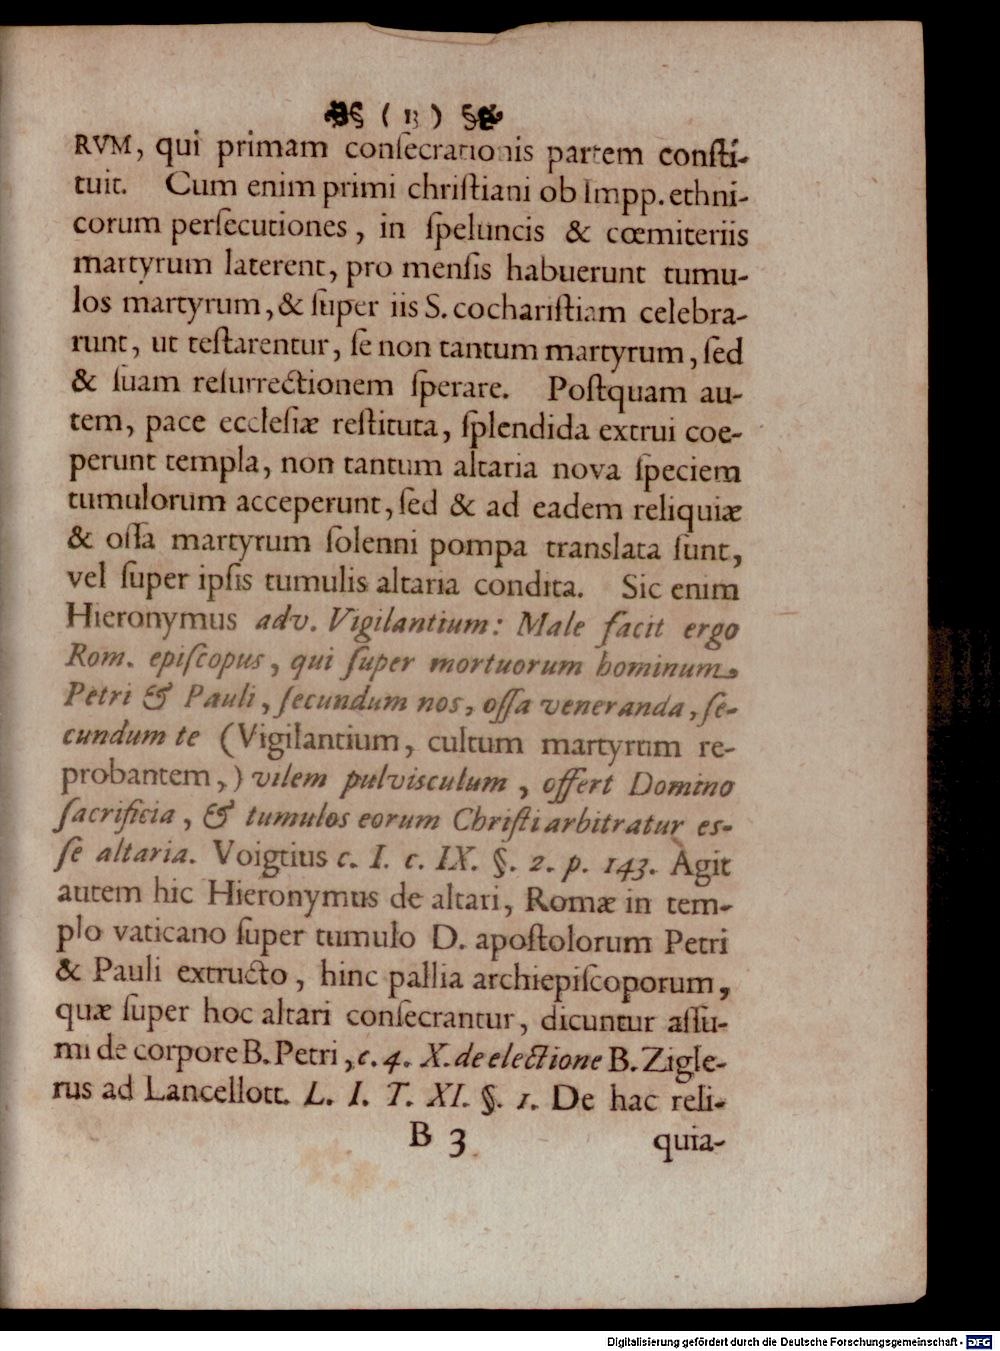 ( 13 )
RVM, qui primam conſecrationis partem conſti-
tuit. Cum enim primi chriſtiani ob Impp. ethni-
corum perſecutiones, in ſpeluncis & cœmiteriis
martyrum laterent, pro menſis habuerunt tumu-
los martyrum, & ſuper iis S. cochariſtiam celebra-
runt, ut teſtarentur, ſe non tantum martyrum, ſed
& ſuam reſurrectionem ſperare. Poſtquam au-
tem, pace eccleſiæ reſtituta, ſplendida extrui coe-
perunt templa, non tantum altaria nova ſpeciem
tumulorum acceperunt, ſed & ad eadem reliquiæ
& oſſa martyrum ſolenni pompa translata ſunt,
vel ſuper ipſis tumulis altaria condita. Sic enim
Hieronymus adv. Vigilantium: Male facit ergo
Rom. epiſcopus, qui ſuper mortuorum hominum
Petri & Pauli, ſecundum nos, oſſa veneranda, ſe-
cundum te (Vigilantium, cultum martyrum re-
probantem,) vilem pulvisculum, offert Domino
ſacrificia, & tumulos eorum Chriſti arbitratur eſ-
ſe altaria. Voigtius c. I. c. IX. §. 2. p. 143. Agit
autem hic Hieronymus de altari, Romæ in tem-
plo vaticano ſuper tumulo D. apoſtolorum Petri
& Pauli extructo, hinc pallia archiepiſcoporum,
quæ ſuper hoc altari conſecrantur, dicuntur aſſu-
mi de corpore B. Petri, c. 4. X. de electione B. Zigle-
rus ad Lancellott. L. I. T. XI. §. 1. De hac reli-
B 3 quia-
Digitalisierung gefördert durch die Deutsche Forschungsgemeinschaft - DFG